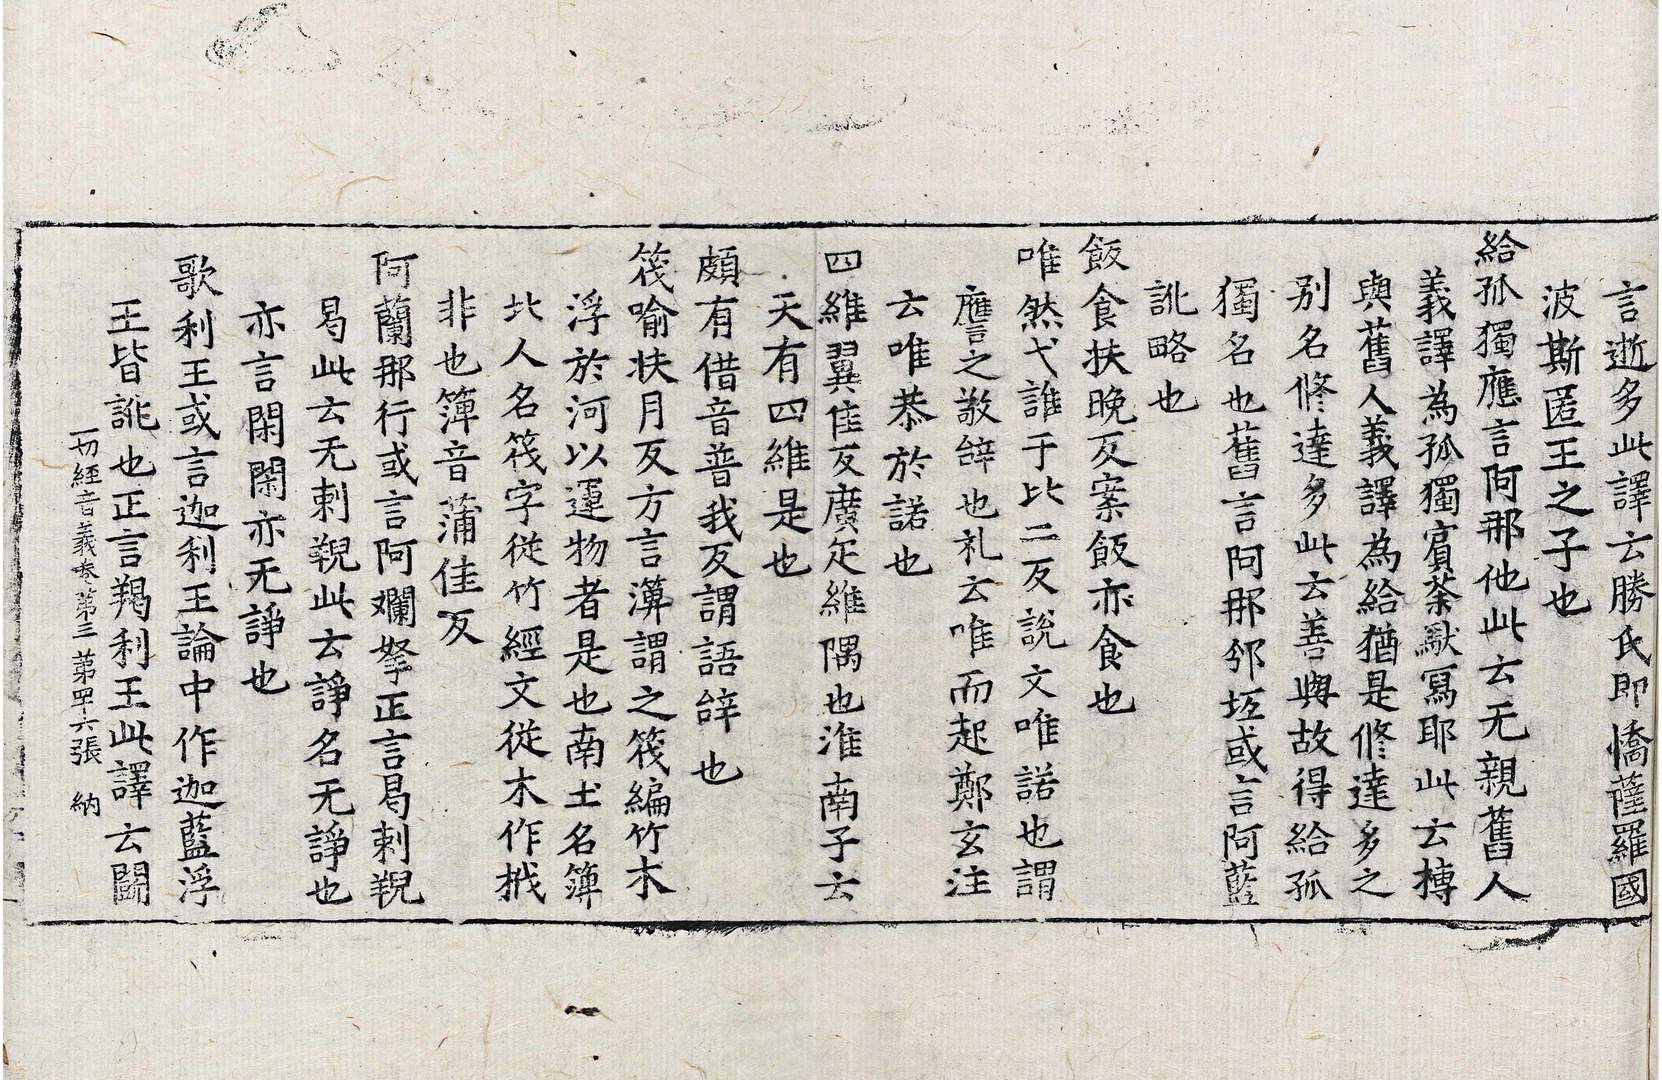 言逝多此譯云勝氏即憍薩羅國
波斯匿王之子也
給孤獨應言阿那他此云无親舊人
義譯為孤獨賓荼馱寫耶此云摶
與舊人義譯為給猶是修達多之
别名修達多此云善與故得給孤
獨名也舊言阿那邠坻或言阿藍
訛略也
飯食扶晚反案飯亦食也
唯然弋誰于比二反說文唯諾也謂
應之敬辝也礼云唯而起鄭玄注
云唯恭於諾也
四維翼隹反廣疋維隅也淮南子云
天有四維是也
頗有借音普我反謂語辝也
筏喻扶月反方言簰謂之筏編竹木
浮於河以運物者是也南土名簰
北人名筏字從竹經文從木作栰
非也簰音蒲佳反
阿蘭那行或言阿爛拏正言曷剌䫂
曷此云无剌䫂此云諍名无諍也
亦言閑閑亦无諍也
歌利王或言迦利王論中作迦藍浮
王皆訛也正言羯利王此譯云鬪
一切經音義卷第三 第四十六張 納